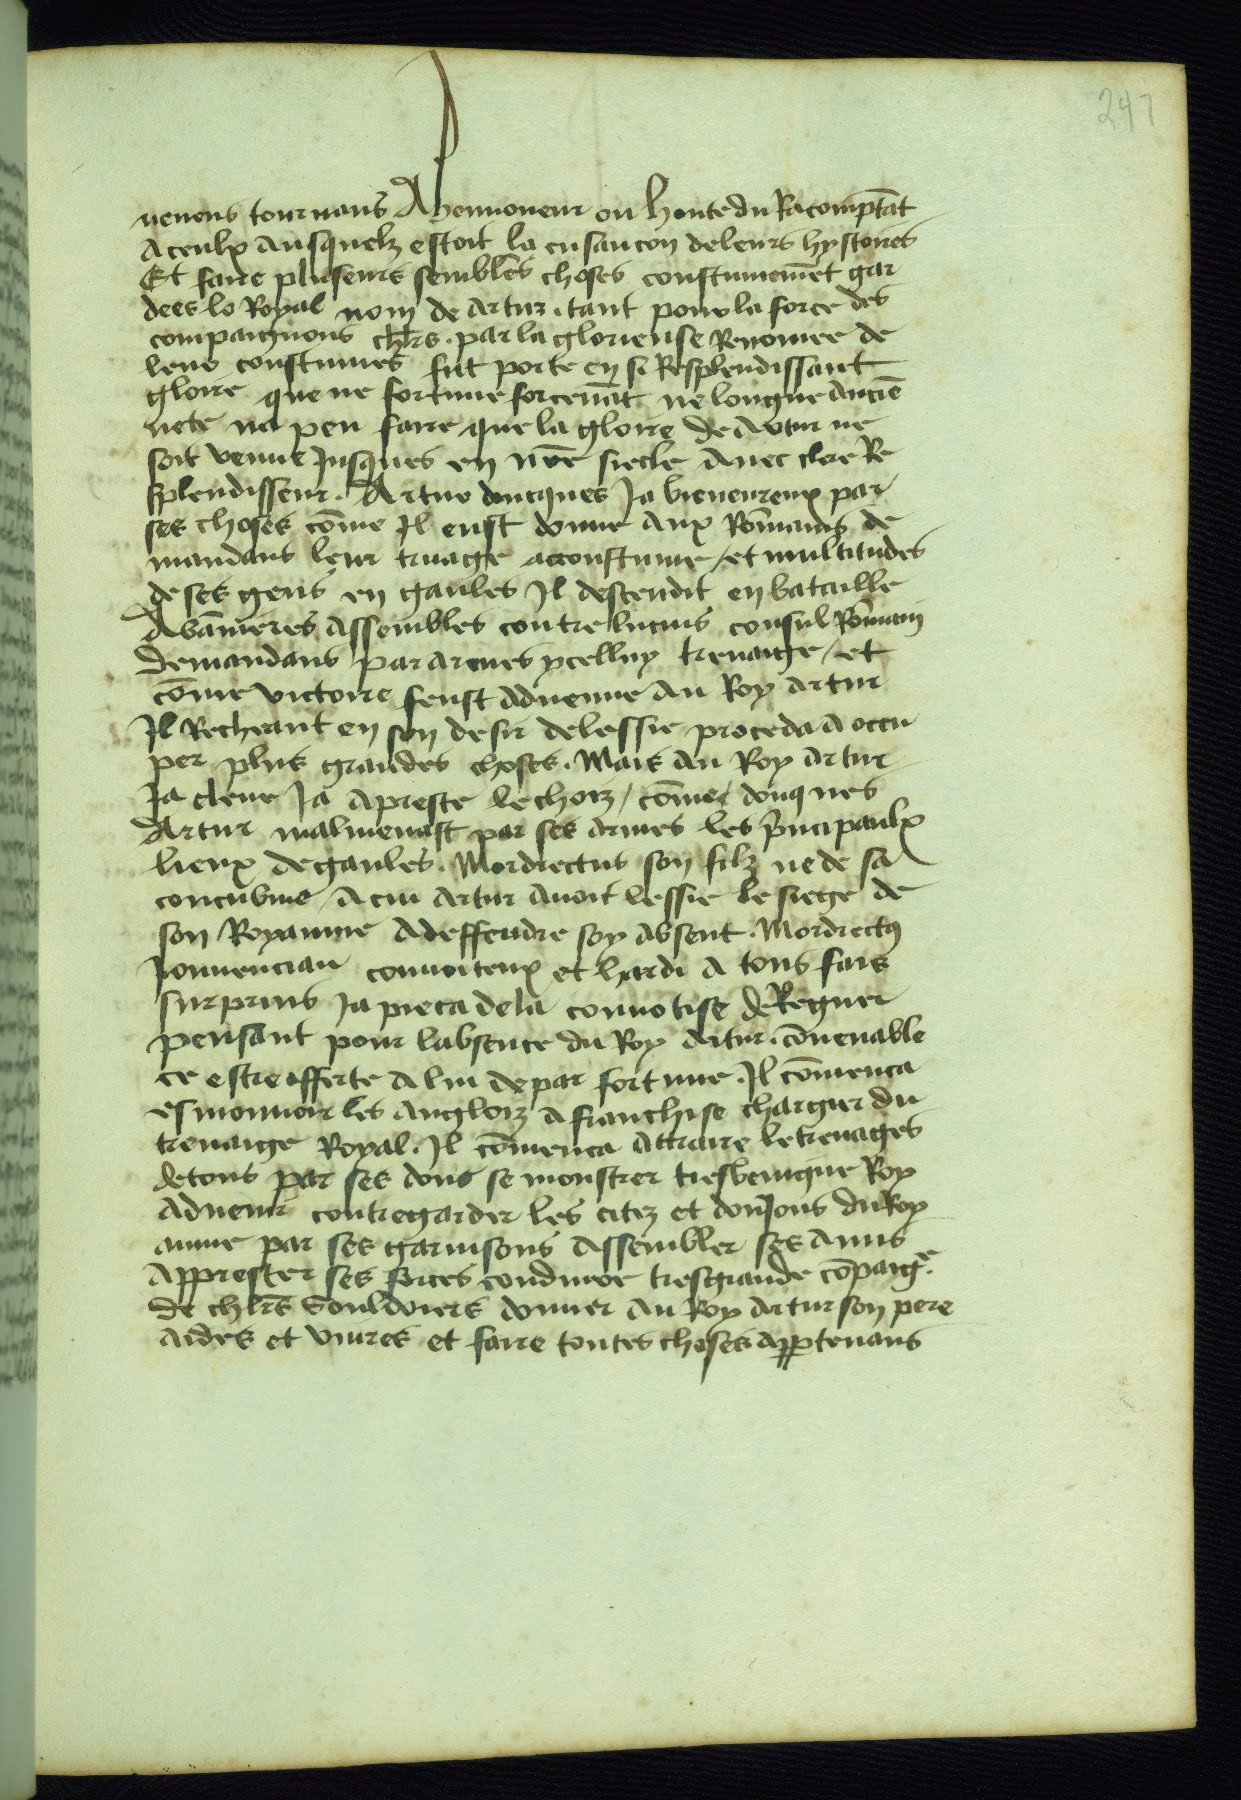 247
uenens tournans A honnoneur ou honte du Racomptāt
A ceulx Ausquelz estoit la cusancon de leurs hystoires
Et faire pluseurs sembles choses coustumemēt gar
dees lo Royal nom de Artur . tant pour la force des
compaignons chlrs . par la glorieuse Renomee de
leur coustumes fut porte en si Resplendissant
gloire que ne fortune forcenāt ne longue anciē
nete na peu faire que la gloire de Artur ne
soit venue Jusques en nr̄e siecle Auec clere Re
splendisseur . Artur doncques Ja bieneureux par
ses choses cōme Il eust donne Aux Rōmains de
mandans leur truage accoustume / et multitudes
de ses gens en gaules Il descendit en bataille
A bānieres Assembles contre lucius consul Rōmain
demandans par armes ycelluy treuaige / et
cōme victoire feust Aduenue Au Roy Artur
Il Recheant en son desir delessie proceda A occu
per plus grandes choses . Mais Au Roy Artur
Ja cleue Ja Apreste le choiz / cōme donques
Artur malmenast par ses Armes les p̄ncipaulx
lieux de gaules . Mordrectus son filz ne de sa
concubine A cui Artur Auoit lessie le siege de
son Royaume A deffendre soy Absent . Mordrectus
Jouuencian conuoiteux et hardi A tous fais
surprins Ja pieca de la conuotise de Regner
pensant pour labsence du Roy Artur . cōuenable
ce estre offerte A lui de par fortune . Il cōmenca
esmouuoir les Angloiz A franchise chargier du
treuaige Royal . Il cōmenca Attraire le treuages
de tous par ses dons se monstrer tresbenigne Roy
Aduenir contregarder les citez et donJons du Roy
aume par ses garnisons Assembler ses Amis
Apprester ses forces conduire tresgrande cōpaig^e .
de chlr̄s Souldoiers donner Au Roy Artur son pere
Aides et viures et faire toutes choses Appertenans